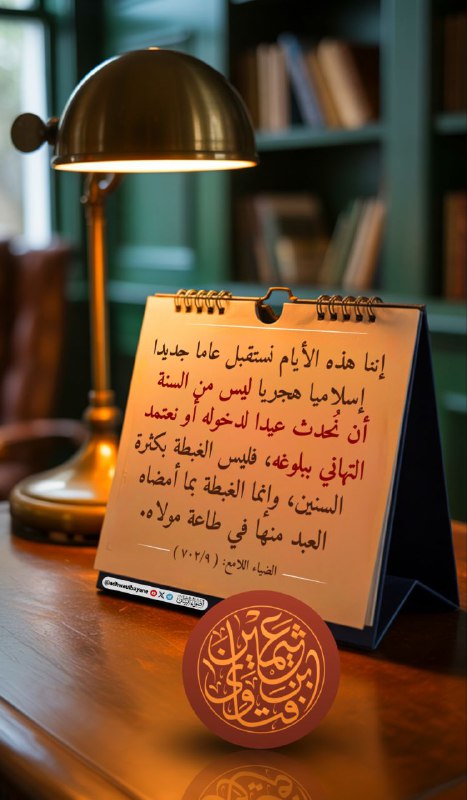 إننا هذه الأيام نستقبل عاما جديدا
إسلاميا هجريا ليس من السنة
أن نُحدث عيدا لدخوله أو نعتمد
التهاني ببلوغه، فليس الغبطة بكثرة
السنين، وانما الغبطة بما أمضاه
العبد منها في طاعة مولاه.
الضياء اللامع: (٧٠٢/٩)
@adhwaulbayane
أضواء البيان
فتاوى ابن عثيمين